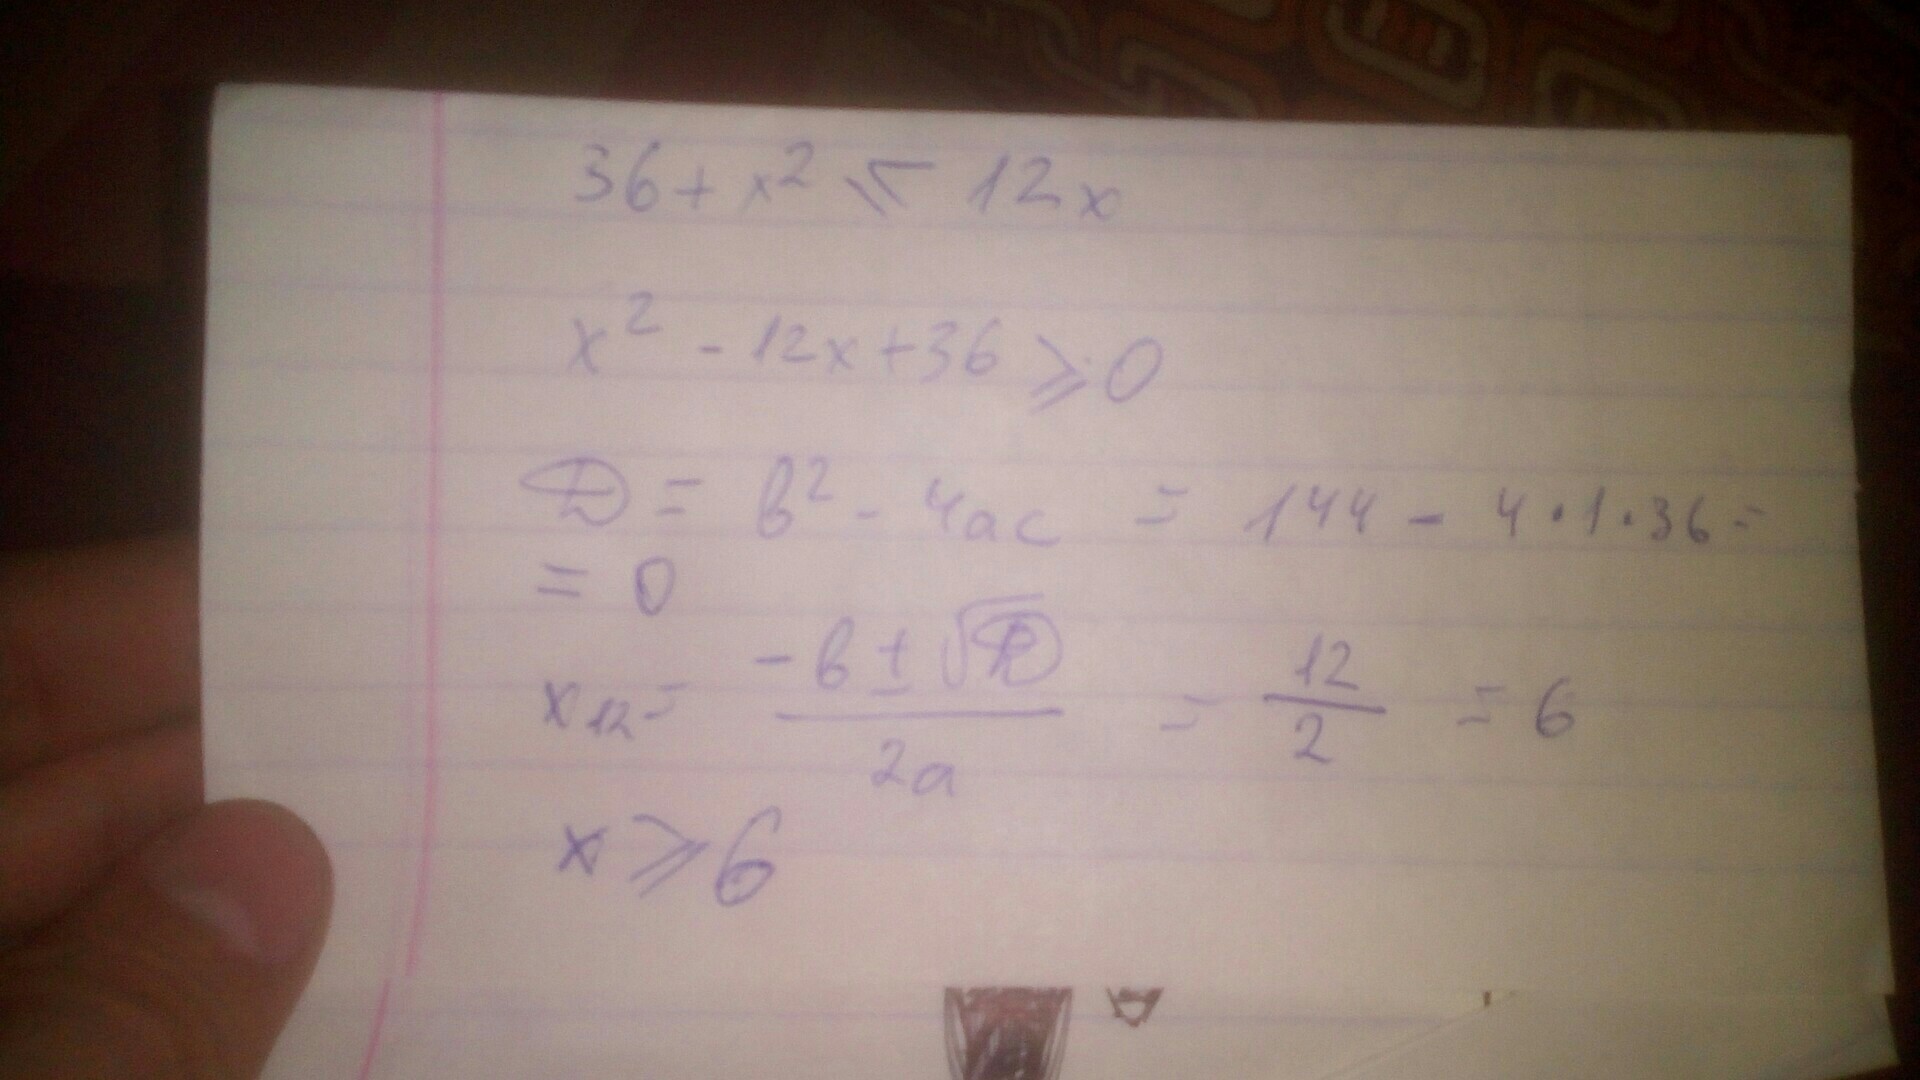 36 + x² ⩽ 12x
x² - 12x + 36 ⩾ 0
D = b² - 4ac = 144 - 4·1·36 =
= 0
x₁₂ = (-b ± √D) / 2a = 12/2 = 6
x ⩾ 6